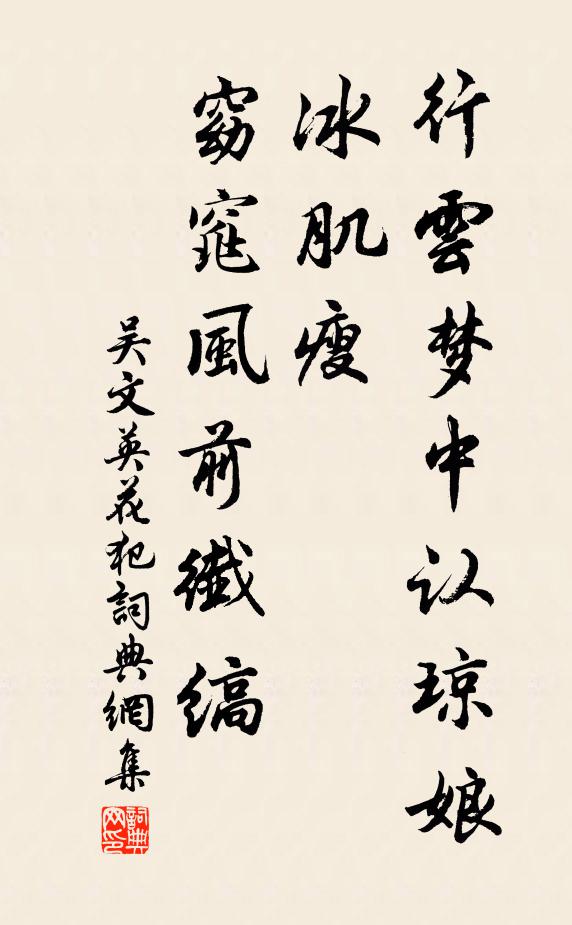 行雲梦中认琼娘
冰肌瘦
窈窕風前纖缟
吴文英花犯詞典網集
詞典网印